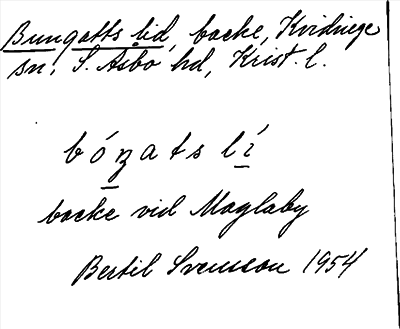 Bungatts lid, backe, Kvidinge
sn, S. Åsbo hd, Krist. l.
bóŋatslí
backe vid Maglaby
Bertil Svensson 1954